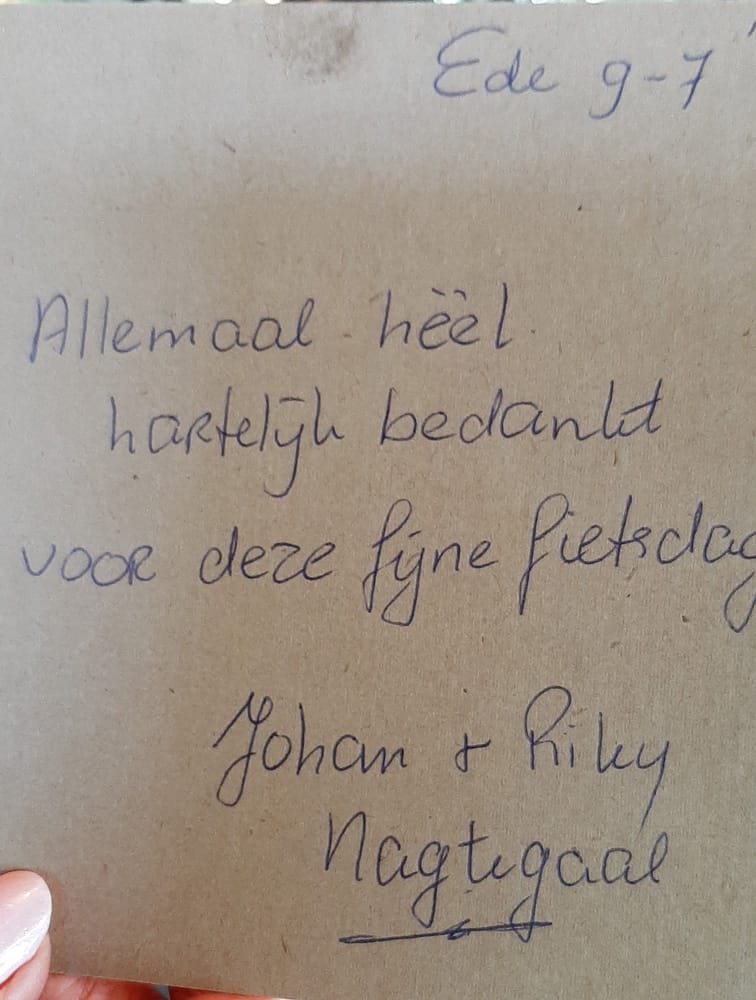 Ede 9-7
Allemaal hëël
hartelijk bedankt
voor deze fijne fietsdag
Johan + Riky
Nagtegaal